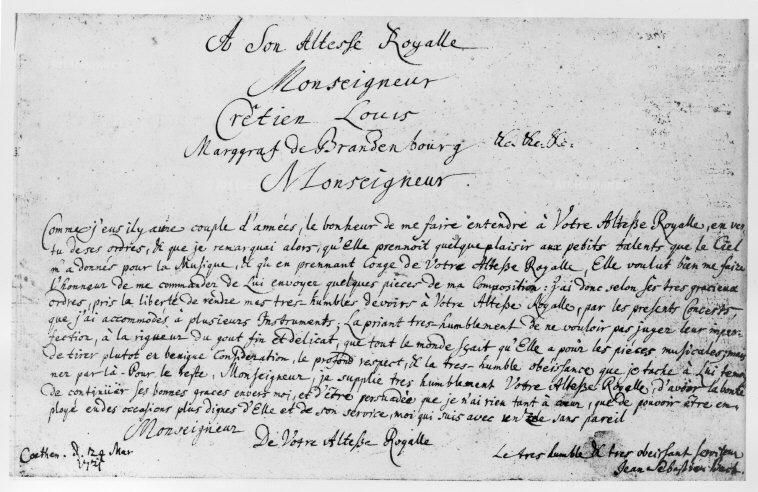 A Son Altesse Royalle
Monseigneur
Crêtien Louis
Marggraf de Brandenbourg &c. &c. &c.
Monseigneur.
Comme j'eus il y a une couple d'années, le bonheur de me faire entendre à Votre Alteße Royalle, en ver,
tu de ses ordres, & que je remarquai alors, qu'Elle prennoit quelque plaisir aux petits talents que le Ciel
m'a donnés pour la Musique, & qu'en prennant Conge de Votre Alteße Royalle, Elle voulut bien me faire
l'honneur de me commander de Lui envoyer quelques pieces de ma Composition: j'ai donc selon ses tres gracieux
ordres, pris la liberté de rendre mes tres-humbles devoirs à Votre Alteße Royalle, par les presents Concerts,
que j'ai accommodés à plusieurs Instruments; La priant tres-humblement de ne vouloir pas juger leur imper,
fection, à la rigueur du gout fin et delicat, que tout le monde sçait qu'Elle a pour les piéces musicales; mais
de tirer plutot en benigne Consideration, le profond respect, & la tres-humble obeissance que je tache à Lui temoi,
ner par là. Pour le reste, Monseigneur, je supplie tres humblement Votre Alteße Royalle, d'avoir la bonté
de continüer ses bonnes graces envers moi, et d'être persuadèe que je n'ai rien tant à cœur, que de pouvoir être em,
ployé en des occasions plus dignes d'Elle et de son service, moi qui suis avec un zele sans pareil
Monseigneur
De Votre Alteße Royalle
Coethen. d. 24 Mar
1721
Le tres humble & tres obeissant serviteur
Jean Sebastien Bach.